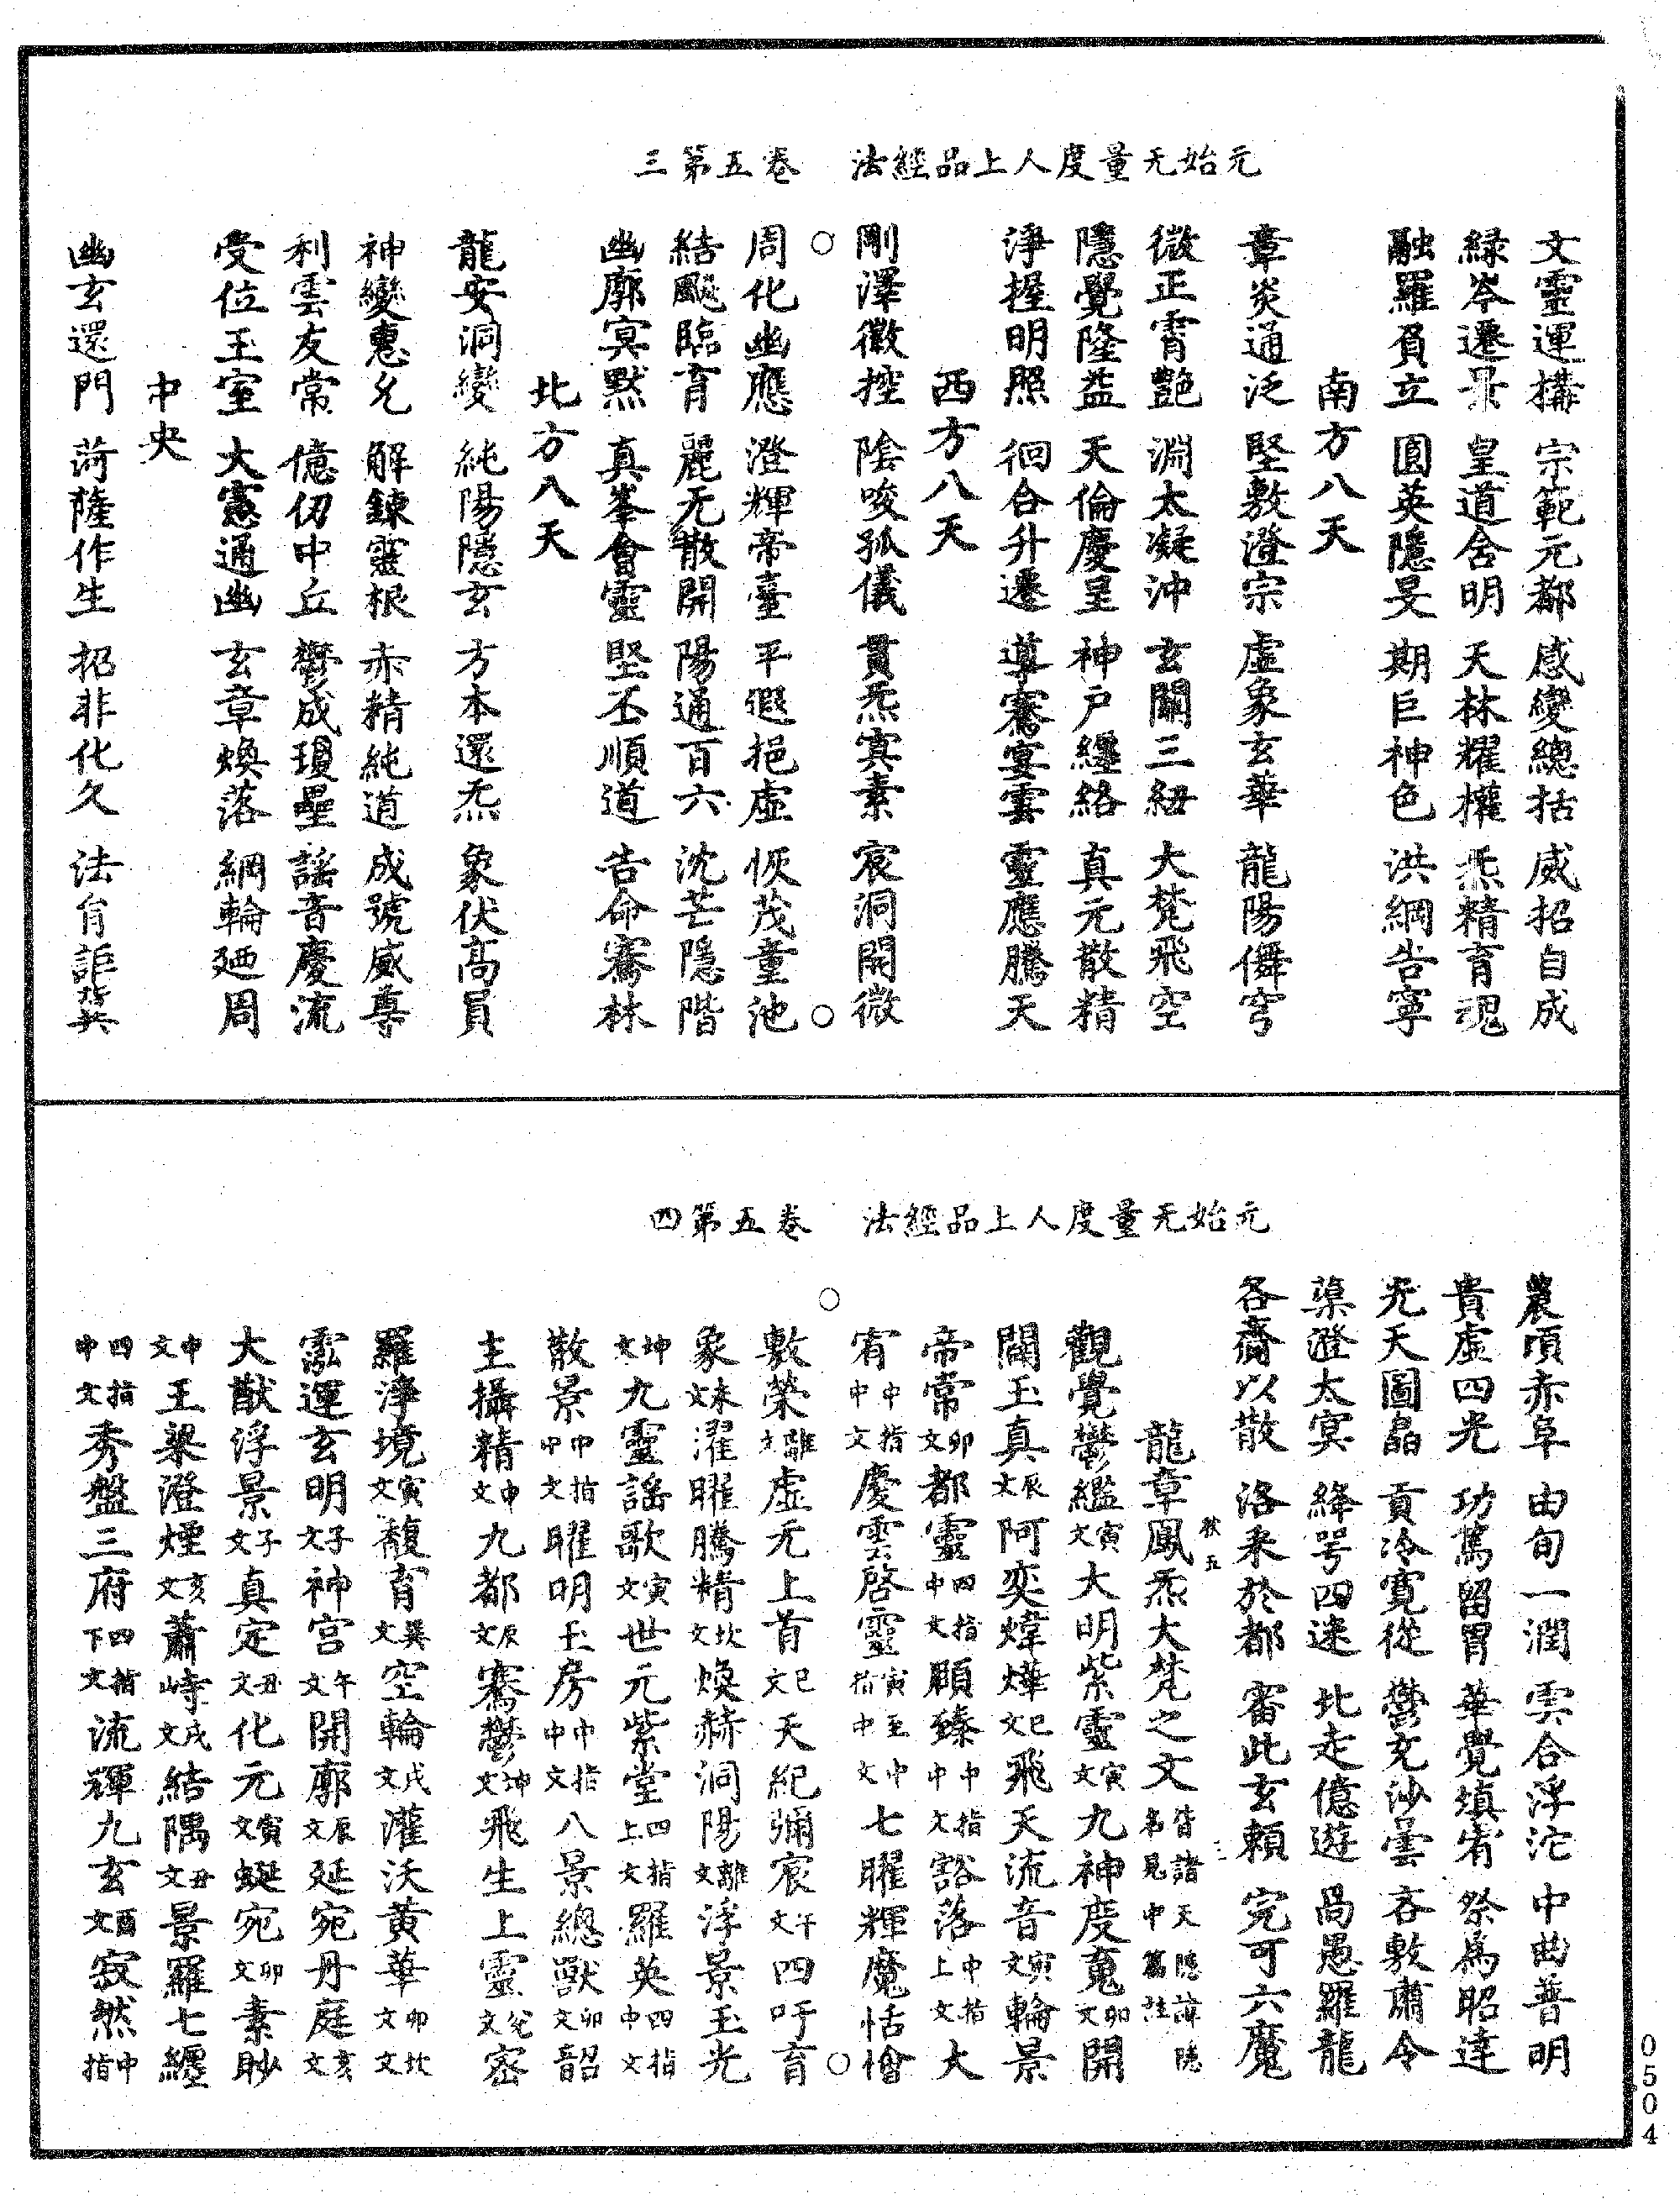 元始无量度人上品經法　卷五第三
文靈運構　宗範元都　感變總括　威招自成
緑岑遷景　皇道舍明　天林耀權　炁精育魂
融羅負立　圓英隱旻　期巨神色　洪綱告寧
南方八天
章炎通泛　堅敷澄宗　虛象玄華　龍陽儛穹
微正霄艷　淵太凝沖　玄關三紐　大梵飛空
隱覺隆益　天倫慶呈　神户纏絡　真元散精
淨握明照　徊合升遷　導騫宴雲　靈應騰天
西方八天
剛澤徽控　陰唆孤儀　貫炁寘素　宸洞開微
周化幽應　澄輝帝臺　平遐挹虛　恢茂童池
結飈臨育　麗无散開　陽通百六　沈芒隱階
幽廓冥黙　真峯會靈　堅丕順道　告命騫林
北方八天
龍安洞變　純陽隱玄　方本還炁　象伏髙員
神變惠允　解鍊靈根　赤精純道　成號威尊
利雲友常　億仞中丘　鬱成瓊壘　謡音慶流
受位玉室　大憲通幽　玄章煥落　綱輪廼周
中央
幽玄還門　菏薩作生　招非化久　法育詎冀
元始无量度人上品經法　卷五第四
農頃赤阜　由旬一潤　雲合浮沱　中曲善明
貴虛四光　功篤留胃　華覺填宥　祭為昭達
光天圖晶　貢冷寛從　鬱文沙曇　吞敷蕭令
蕖澄太冥　絳咢四迷　北走億遊　咼愚羅龍
各齋以散　洛来於都　審此玄賴　完可六魔
龍章鳳炁大梵之文皆諸天隱諱隱名見中篇註
觀覺鬱鑑寅文大明紫靈寅文九神慶蒐卯文開
闢玉真辰文阿奕煒燁巳文飛天流音寅文輪景
帝常卯文都靈四指中文願臻中指中文豁落中指上文大
宥中指中文慶雲啓靈寅至中指中文七曜輝魔恬愴
敷榮離文虛无上首巳文天紀彌宸午文四吁育
象未文濯曜騰精坎文煥赫洞陽離文浮景玉光
坤文九靈謡歌寅文世元紫堂四指上文羅英四指中文
散景中指中文曜明玉房中指中文八景總獸卯文韶
主攝精申文九都辰文騫鬱坤文飛生上靈兊文宻
羅淨境寅文馥育巽文空輪戌文灌沃黄華卯文坎文
泓運玄明子文神宮午文開廓辰文延宛丹庭亥文
大猷浮景子文真定丑文化元寅文蜒宛卯文素眇
申文王梁澄煙亥文蕭峙戌文結隅丑文景羅七纏
四指中文秀盤三府四指下文流輝九玄酉文寂然中指
秋五
0504